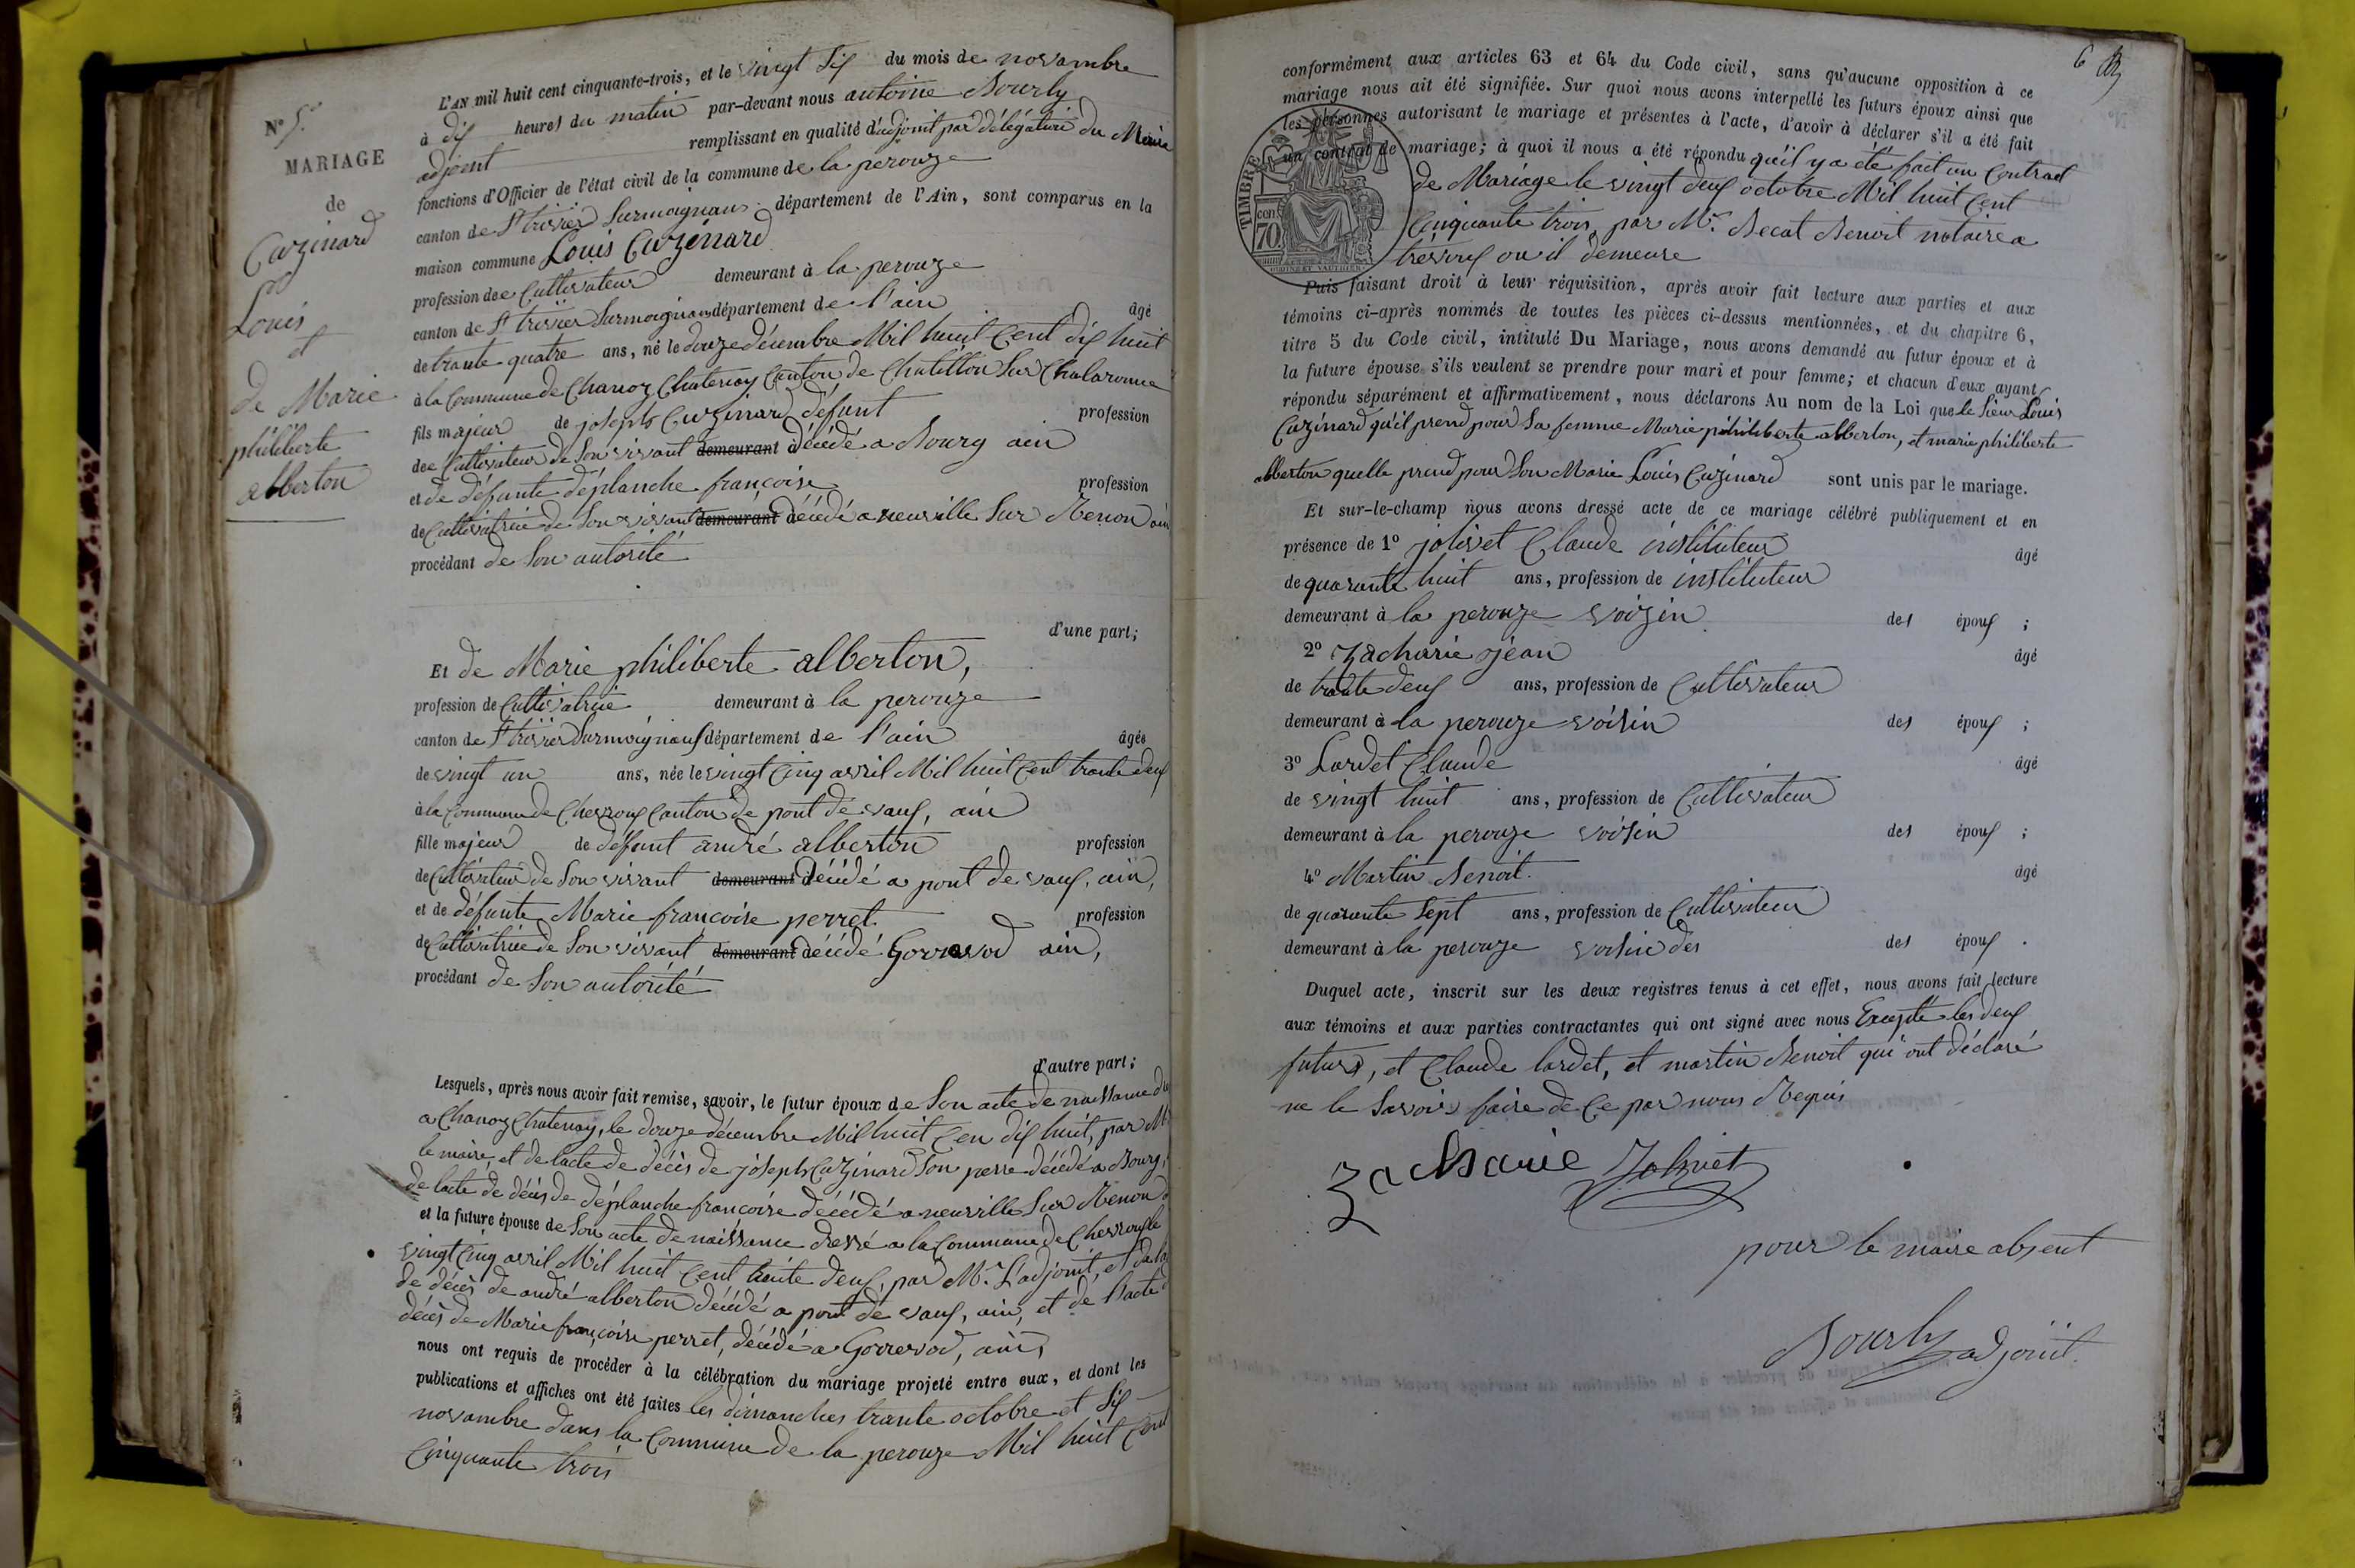 N° 5.
MARIAGE
de
Cuzinard
Louis
et
de Marie
philiberte
alberton
L'AN mil huit cent cinquante-trois, et le vingt Six du mois de novambre
à dix heures du matin par-devant nous antoine Bourly
adjoint remplissant en qualité d'adjoint par délégation du Maire
fonctions d'Officier de l'état civil de la commune de la perouze
canton de St trivier Surmoignans département de l'Ain, sont comparus en la
maison commune Louis Cuzinard
profession de Cultivateur demeurant à la perouze
canton de St trivier Surmoignans département de l'ain âgé
de trante quatre ans, né le douze décembre Mil huit Cent dix huit
à la Commune de Chanoz Chatenay Canton de Chatillon Sur Chalaronne
fils majeur de joseph Cuzinard défunt profession
de Cultivateur de Son vivant demeurant décédé a Bourg ain
et de défunte déplanche françoise profession
de Cultivatrice de Son vivant demeurant décédé a neuville Sur Renon ain
procédant de Son autorité
d'une part;
Et de Marie philiberte alberton,
profession de Cultivatrice demeurant à la perouze
canton de St trivier Surmoignans département de l'ain âgée
de vingt un ans, née le vingt Cinq avril Mil huit Cent trante deux
à la Commune de Chevroux Canton de pont de vaux, ain
fille majeur de défunt andré alberton profession
de Cultivateur de Son vivant demeurant décédé a pont de vaux, ain,
et de défunte Marie françoise perret profession
de Cultivatrice de Son vivant demeurant décédé Gorrevod ain,
procédant de Son autorité
d'autre part;
Lesquels, après nous avoir fait remise, savoir, le futur époux de Son acte de naissance
a Chanoz Chatenay, le douze décembre Mil huit Cen dix huit, par Mr
le maire, et de lacte de décès de joseph Cuzinard Son perre décédé a Bourg,
de lacte de décès de déplanche françoise décédé a neuville Sur Renon
et la future épouse de Son acte de naissance dressé a la Commune de Chevroux le
vingt Cinq avril Mil huit Cent trante deux, par Mr. L'adjoint, et de la
de décès de andré alberton décédé a pont de vaux, ain, et de l'acte d
décès de Marie françoise perret, décédé a Gorrevod, ain,
nous ont requis de procéder à la célébration du mariage projeté entre eux, et dont les
publications et affiches ont été faites les dimanches trante octobre et Six
novambre dans la Commune de la perouze Mil huit Cent
Cinquante trois
6
conformément aux articles 63 et 64 du Code civil, sans qu'aucune opposition à ce
mariage nous ait été signifiée. Sur quoi nous avons interpellé les futurs époux ainsi que
les personnes autorisant le mariage et présentes à l'acte, d'avoir à déclarer s'il a été fait
un contrat de mariage; à quoi il nous a été répondu qu'il y a été fait un Contract
de Mariage le vingt deux octobre Mil huit Cent
Cinquante trois par Mr. Becat Benoit notaire a
trévoux ou il demeure
TIMBRE
cen.
70.
Puis faisant droit à leur réquisition, après avoir fait lecture aux parties et aux
témoins ci-après nommés de toutes les pièces ci-dessus mentionnées, et du chapitre 6,
titre 5 du Code civil, intitulé Du Mariage, nous avons demandé au futur époux et à
la future épouse s'ils veulent se prendre pour mari et pour femme; et chacun d'eux ayant
répondu séparément et affirmativement, nous déclarons Au nom de la Loi que le Sieur Louis
Cuzinard qu'il prend pour Sa femme Marie philiberte alberton, et marie philiberte
alberton quelle prend pour Son Marie Louis Cuzinard sont unis par le mariage.
Et sur-le-champ nous avons dressé acte de ce mariage célébré publiquement et en
présence de 1° jolivet Claude instituteur âgé
de quarante huit ans, profession de instituteur
demeurant à la perouze voizin des époux ;
2° Zacharie jean âgé
de trante deux ans, profession de Cultivateur
demeurant à la perouze voisin des époux ;
3° Lardet Claude âgé
de vingt huit ans, profession de Cultivateur
demeurant à la perouze voisin des époux ;
4° Martin Benoit. âgé
de quarante Sept ans, profession de Cultivateur
demeurant à la perouze voisin des des époux .
Duquel acte, inscrit sur les deux registres tenus à cet effet, nous avons fait lecture
aux témoins et aux parties contractantes qui ont signé avec nous Excepté les deux
futurs, et Claude lardet, et martin Benoit qui ont déclaré
ne le Savoir faire de Ce par nous Requis
Zacharie Jolivet
pour le maire absent
Bourly adjoint.